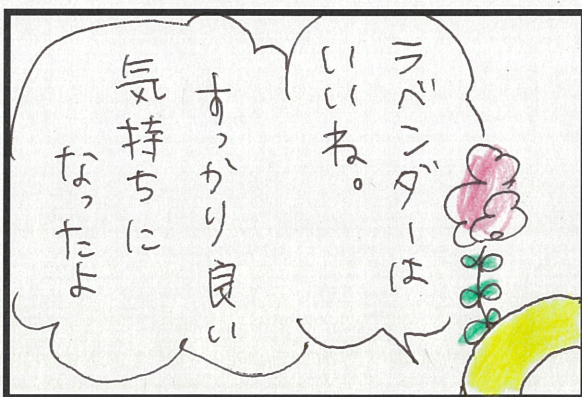 ラベンダーは
いいね。
すっかり良い
気持ちに
なったよ